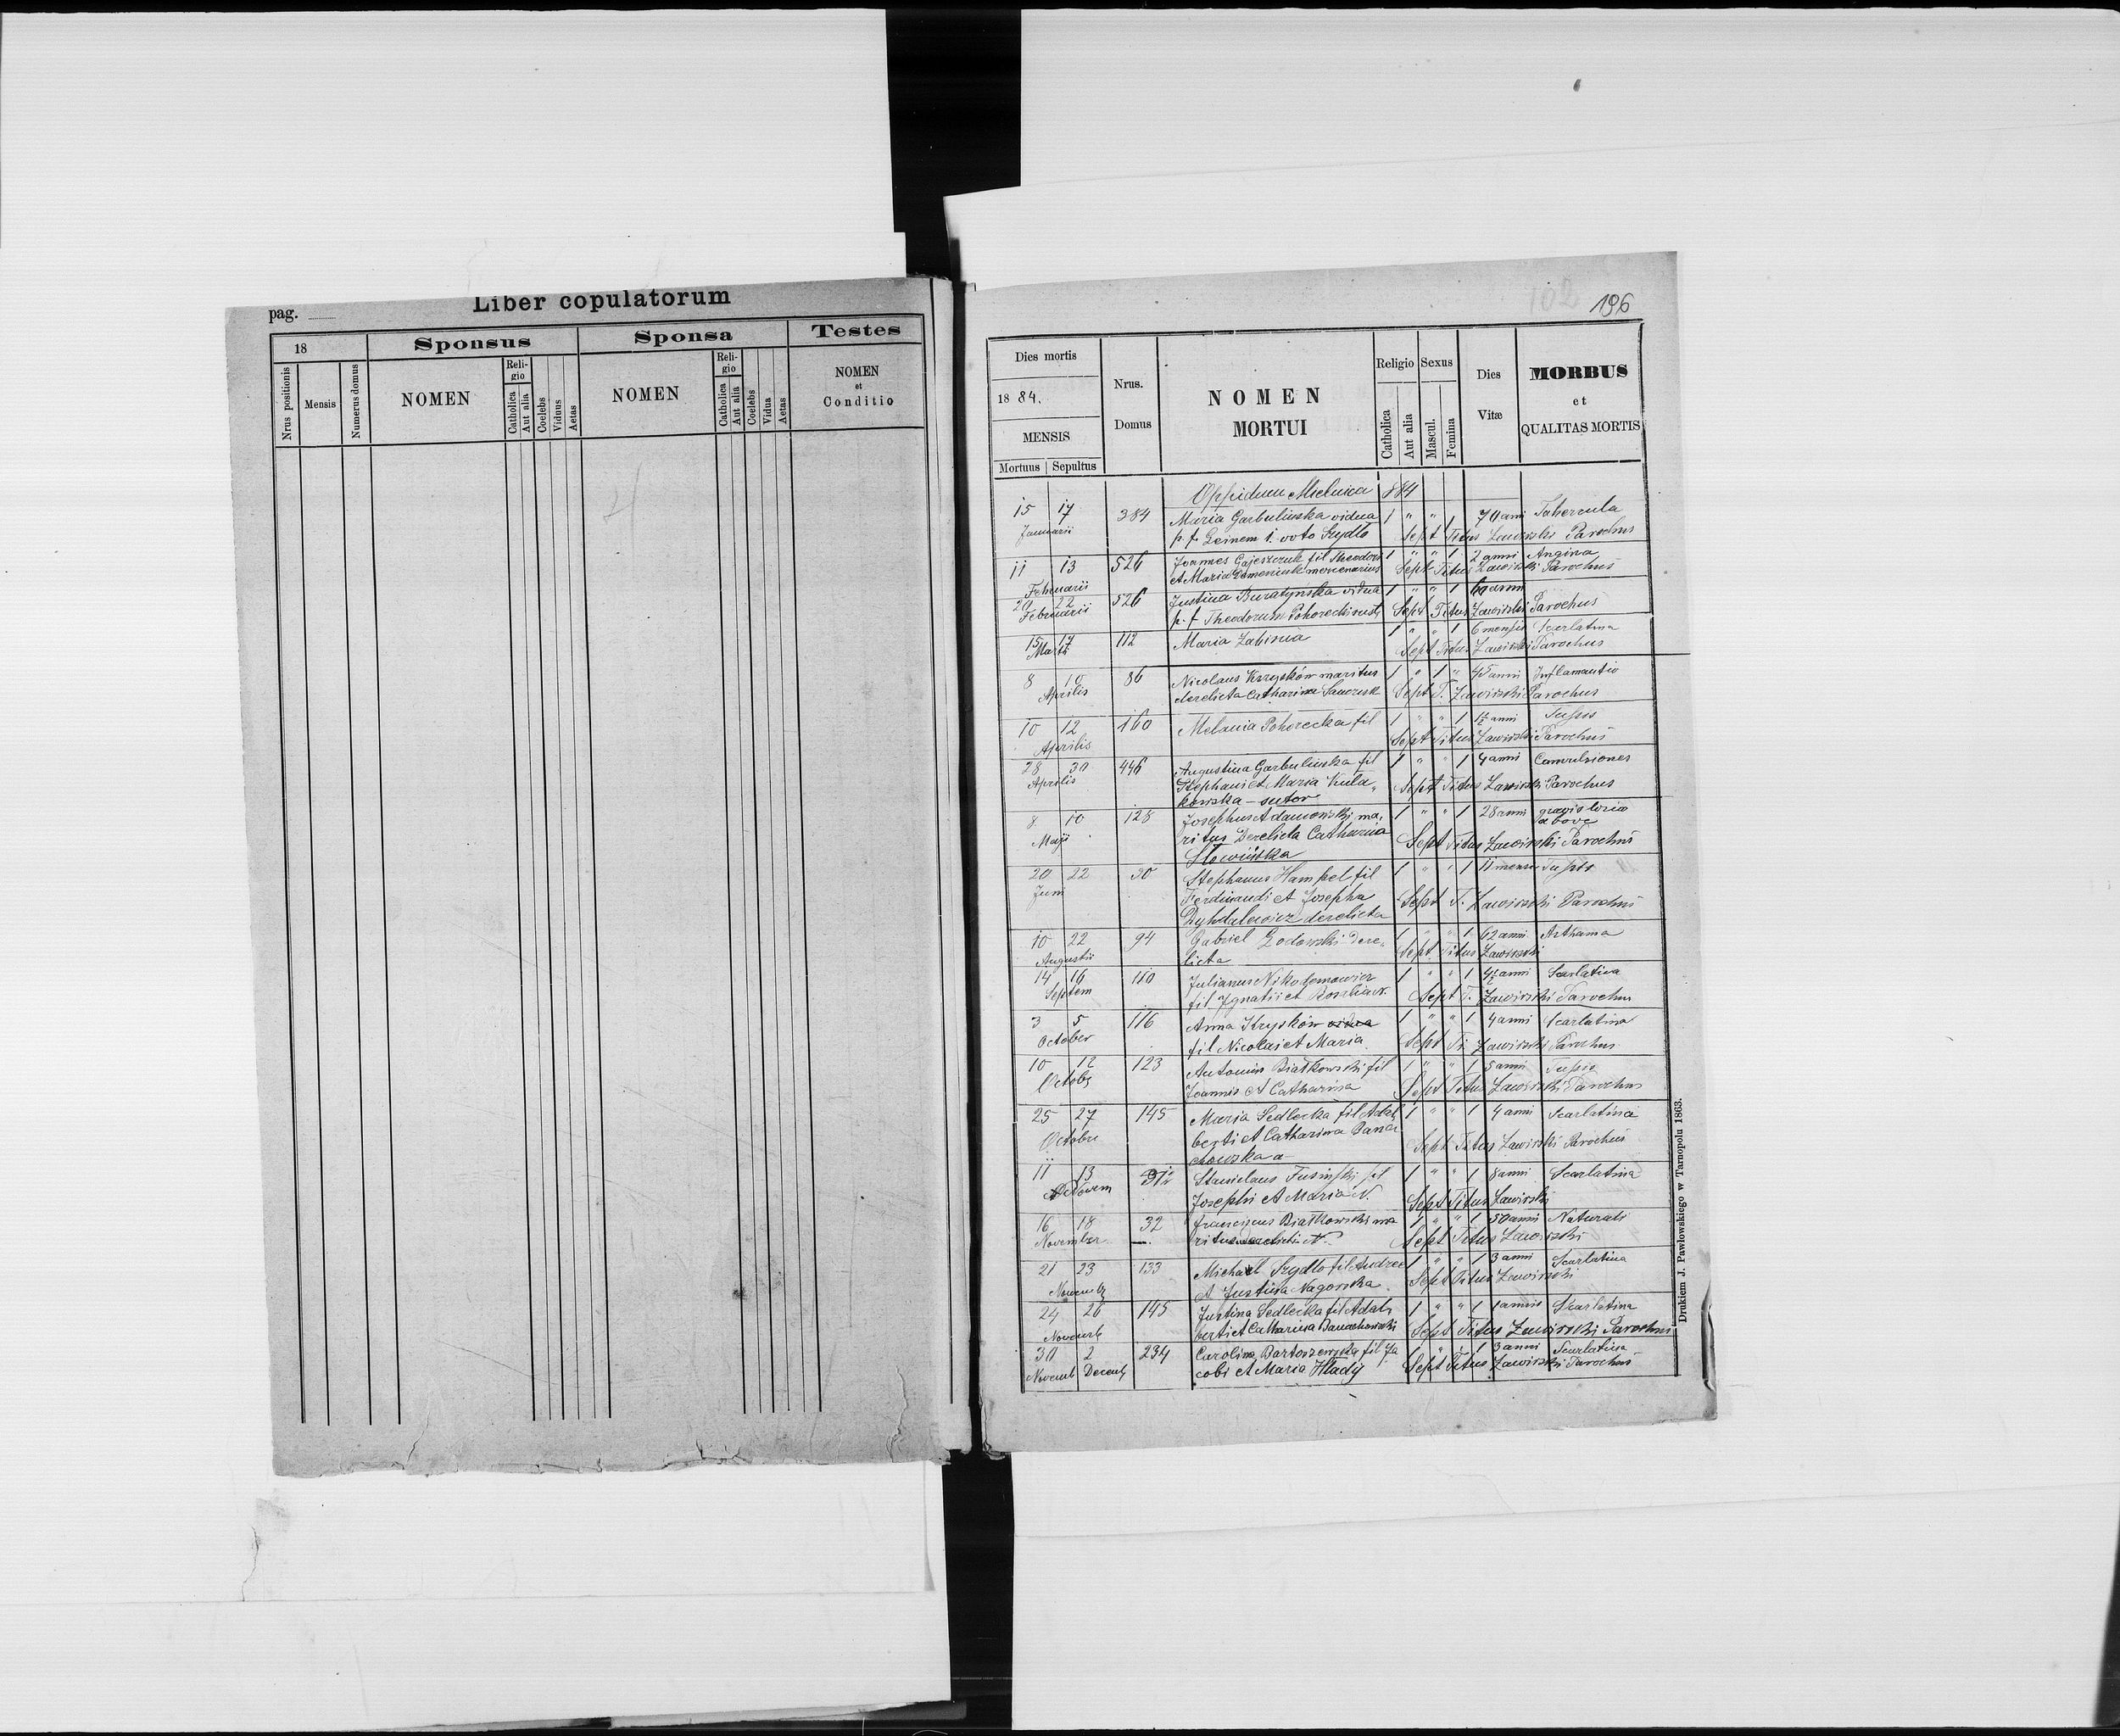 pag.
Liber copulatorum
18
Sponsus
Sponsa
Testes
Nrus positionis
Mensis
Numerus domus
NOMEN
Religio
Catholica
Aut alia
Coelebs
Viduus
Aetas
NOMEN
Religio
Catholica
Aut alia
Coelebs
Vidua
Aetas
NOMEN
et
Conditio
102
196
Dies mortis
1884.
MENSIS
Mortuus Sepultus
Nrus.
Domus
NOMEN
MORTUI
Religio
Catholica
Aut alia
Sexus
Mascul.
Femina
Dies
Vitæ
MORBUS
et
QUALITAS MORTIS
Oppidum Mielnica 884
15 17 384 Maria Garbulinska vidua 1 " " 1 70 anni Tubercula
Januarii p. f. 1. voto Szydlo Sept Titus Zawirski Parochus
11 13 526 Joannes Gajeszczuk fil Theodori 1 " " 1 2 anni Angina
Februarii et Maria mercenarius Sept Titus Zawirski Parochus
20 22 526 Justina Buratynska vidua 1 " " 1 60 anni
Februarii p. f. Theodorum Pohorecki Sept Titus Zawirski Parochus
15 17 112 Maria 1 " " 1 6 mensis Scarlatina
Martii Sept Titus Zawirski Parochus
8 10 86 Nicolaus Kryskow maritus 1 " 1 " 45 anni Inflamantio
Aprilis derelicta Catharina Sept T. Zawirski Parochus
10 12 160 Melania Pohorecka fil 1 " " 1 1½ anni Tussis
Aprilis Sept Titus Zawirski Parochus
28 30 446 Augustina Garbulinska fil 1 " " 1 4 anni Convulsiones
Aprilis Stephani et Maria Kula Sept Titus Zawirski Parochus
kowska - sutor
8 10 128 Josephus Adamowski ma, 1 " " 1 28 anni
Maji ritus Derelicta Catharina Sept Titus Zawirski Parochus
Slowińska
20 22 30 Stephanus Hampel fil 1 " " 1 11 mensis Tussis
Juni Ferdinandi et Josepha Sept T. Zawirski Parochus
derelicta
10 22 94 Gabriel Zodowski Dere, 1 " " 1 62 anni Asthama
Augustii licta Sept Titus Zawirski
14 16 110 Julianus Nikodemowicz 1 " " 1 4½ anni Scarlatina
Septem fil Ignatii et Rosalia N. Sept T. Zawirski Parochus
3 5 116 Anna Kryskow vidua 1 " " 1 4 anni Scarlatina
October fil Nicolai et Maria Sept Ti. Zawirski Parochus
10 12 123 Antonius Białkowski fil 1 " " 1 5 anni Tussis
Octobr Joannis et Catharina Sept Titus Zawirski Parochus
25 27 145 Maria Sedlecka fil Adal 1 " " 1 4 anni Scarlatina
Octobr berti et Catharina Bana Sept Titus Zawirski Parochus
chowska
11 13 Stanislaus fil 1 " " 1 8 anni Scarlatina
Novem Josephi et Maria N. Sept Titus Zawirski
16 18 32 Franciscus Białkowski ma 1 " " 1 50 anni Naturali
November ritus derelicta N. Sept Titus Zawirski
21 23 133 Michael Szydlo fil Andree 1 " " 1 3 anni Scarlatina
Novemb et Justina Nagorska Sept Titus Zawirski
24 26 145 Justina Sedlecka fil Adal, 1 " " 1 1 annus Skarlatina
Novemb berti et Catharina Banachowski Sept Titus Zawirski Parochus
30 2 234 Carolina Bartoszewska fil Ja 1 " " 1 3 anni Scarlatina
Novemb Decemb cobi et Maria Hladij Sept Titus Zawirski Parochus
Drukiem J. Pawłowskiego w Tarnopolu 1863.